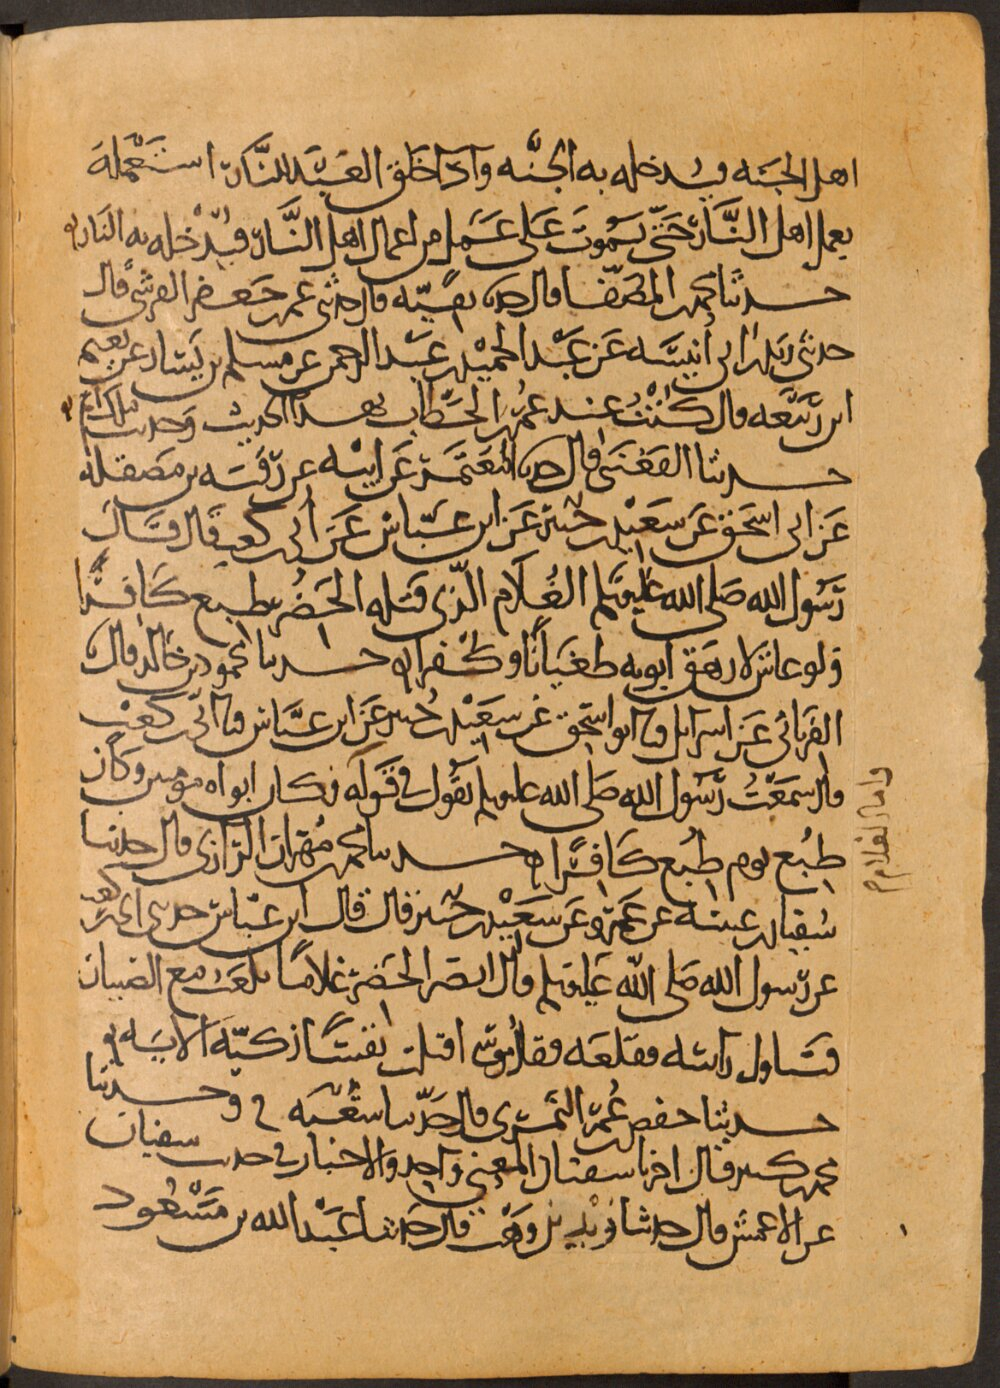 اهل الجنه فيدخله به الجنه واذا خلق العبد للنار استعمله
بعمل اهل النار حتى يموت على عمل من اعمال اهل النار فيدخله به النار
حدثنا محمد بن المصفا قال حدثنا بقيه قال حدثني عمر بن جعفر القرشي قال
حدثني زيد بن ابي انيسه عن عبد الحميد بن عبد الرحمن عن مسلم بن يسار عن نعيم
ابن ربيعه قال كنت عند عمر بن الخطاب بهذا الحديث وحديث مالك اتم
حدثنا القعنبي قال حدثنا المعتمر عن ابيه عن رقبه بن مصقله
عن ابي اسحق عن سعيد بن جبير عن ابن عباس عن أبي بن كعب قال قال
رسول الله صلى الله عليه وسلم الغلام الذي قتله الخضر طبع كافرا
ولو عاش لارهق ابويه طغيانا وكفرا حدثنا محمود بن خالد قال
الفريابي عن اسرائيل قال ابو اسحق عن سعيد بن جبير عن ابن عباس قال أبي بن كعب
قال سمعت رسول الله صلى الله عليه وسلم يقول في قوله فكان ابواه مومنين وكان
طبع يوم طبع كافرا حدثنا محمد بن مهران الرازي قال حدثنا
سفيان بن عيينه عن عمرو عن سعيد بن جبير قال قال ابن عباس حدثني أبي بن كعب
عن رسول الله صلى الله عليه وسلم قال ابصر الخضر غلاما يلعب مع الصبيان
فتناول راسه فقلعه فقال موسى اقتلت نفسا زكيه الايه
حدثنا حفص بن عمر النمري قال حدثنا شعبه ح وحدثنا
محمد بن كثير قال اخبرنا سفيان المعني واحد والاخبار في حديث سفيان
عن الاعمش قال حدثنا زيد بن وهب قال حدثنا عبد الله بن مسعود
واما الغلام